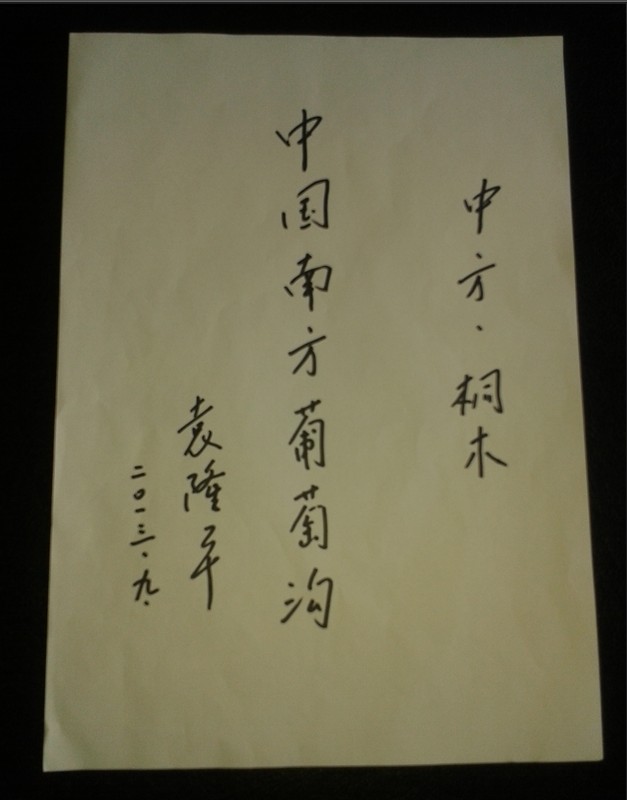 中方·桐木
中国南方葡萄沟
袁隆平
二〇一三·九·